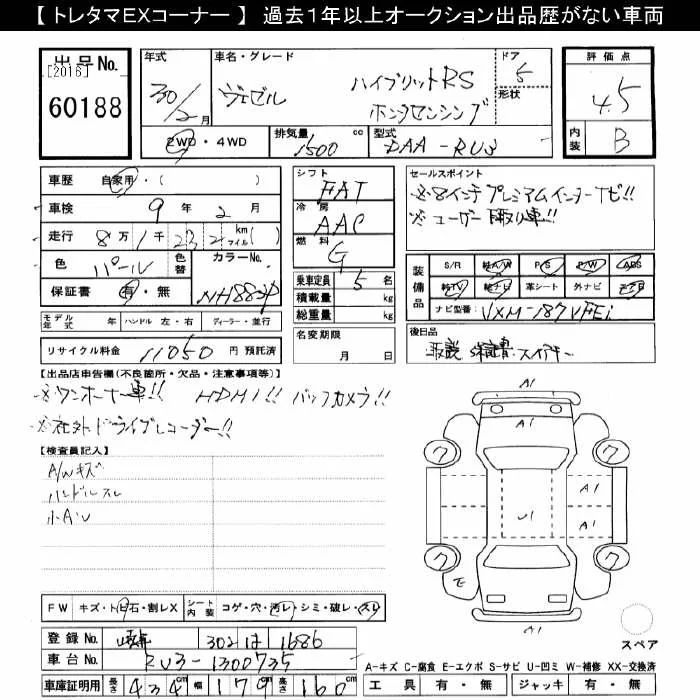 【 トレタマEXコーナー 】 過去1年以上オークション出品歴がない車両
出品No.
[2016]
60188
年式
30/2月
車名・グレード
ヴェゼル ハイブリットRS
ホンダセンシング
ドア
5
形状
評価点
4.5
内装
B
2WD・4WD
排気量
1500 cc
型式
DAA-RU3
車歴 自家用・( )
車検 9年 2月
走行 8万 1千 232 km マイル( )
色 パール
色替
カラーNo.
保証書 有・無
NH883P
シフト
FAT
冷房
AAC
燃料
G
乗車定員 5名
積載量 kg
総重量 kg
名変期限
月 日
セールスポイント
※8インチプレミアムインターナビ!!
※ユーザー下取り車!!
装備品
S/R 純A/W P/S P/W ABS
純TV 純ナビ 革シート 外ナビ エアB
ナビ型番: VXM-187VFEi
モデル年式 年 ハンドル 左・右 ディーラー・並行
リサイクル料金 11050 円 預託済
後日品
取説 保証書 スペアキー
【出品店申告欄(不良箇所・欠品・注意事項等)】
※ワンオーナー車!! HDMI!! バックカメラ!!
※社外ドライブレコーダー!!
【検査員記入】
A/Wキズ
ハンドルスレ
小A・U
A1
ワ
ワ
A1
A1
A1
U1
ワ
ワ
E
A1
スペア
FW キズ・トビ石・割レX
シート内装 コゲ・穴・汚レ・シミ・破レ・スレ
登録No. 302 は 1686
車台No. RU3-1300735
車庫証明用 長さ 434 cm 幅 179 cm 高さ 160 cm
A-キズ C-腐食 E-エクボ S-サビ U-凹ミ W-補修 XX-交換済
工具 有・無 ジャッキ 有・無